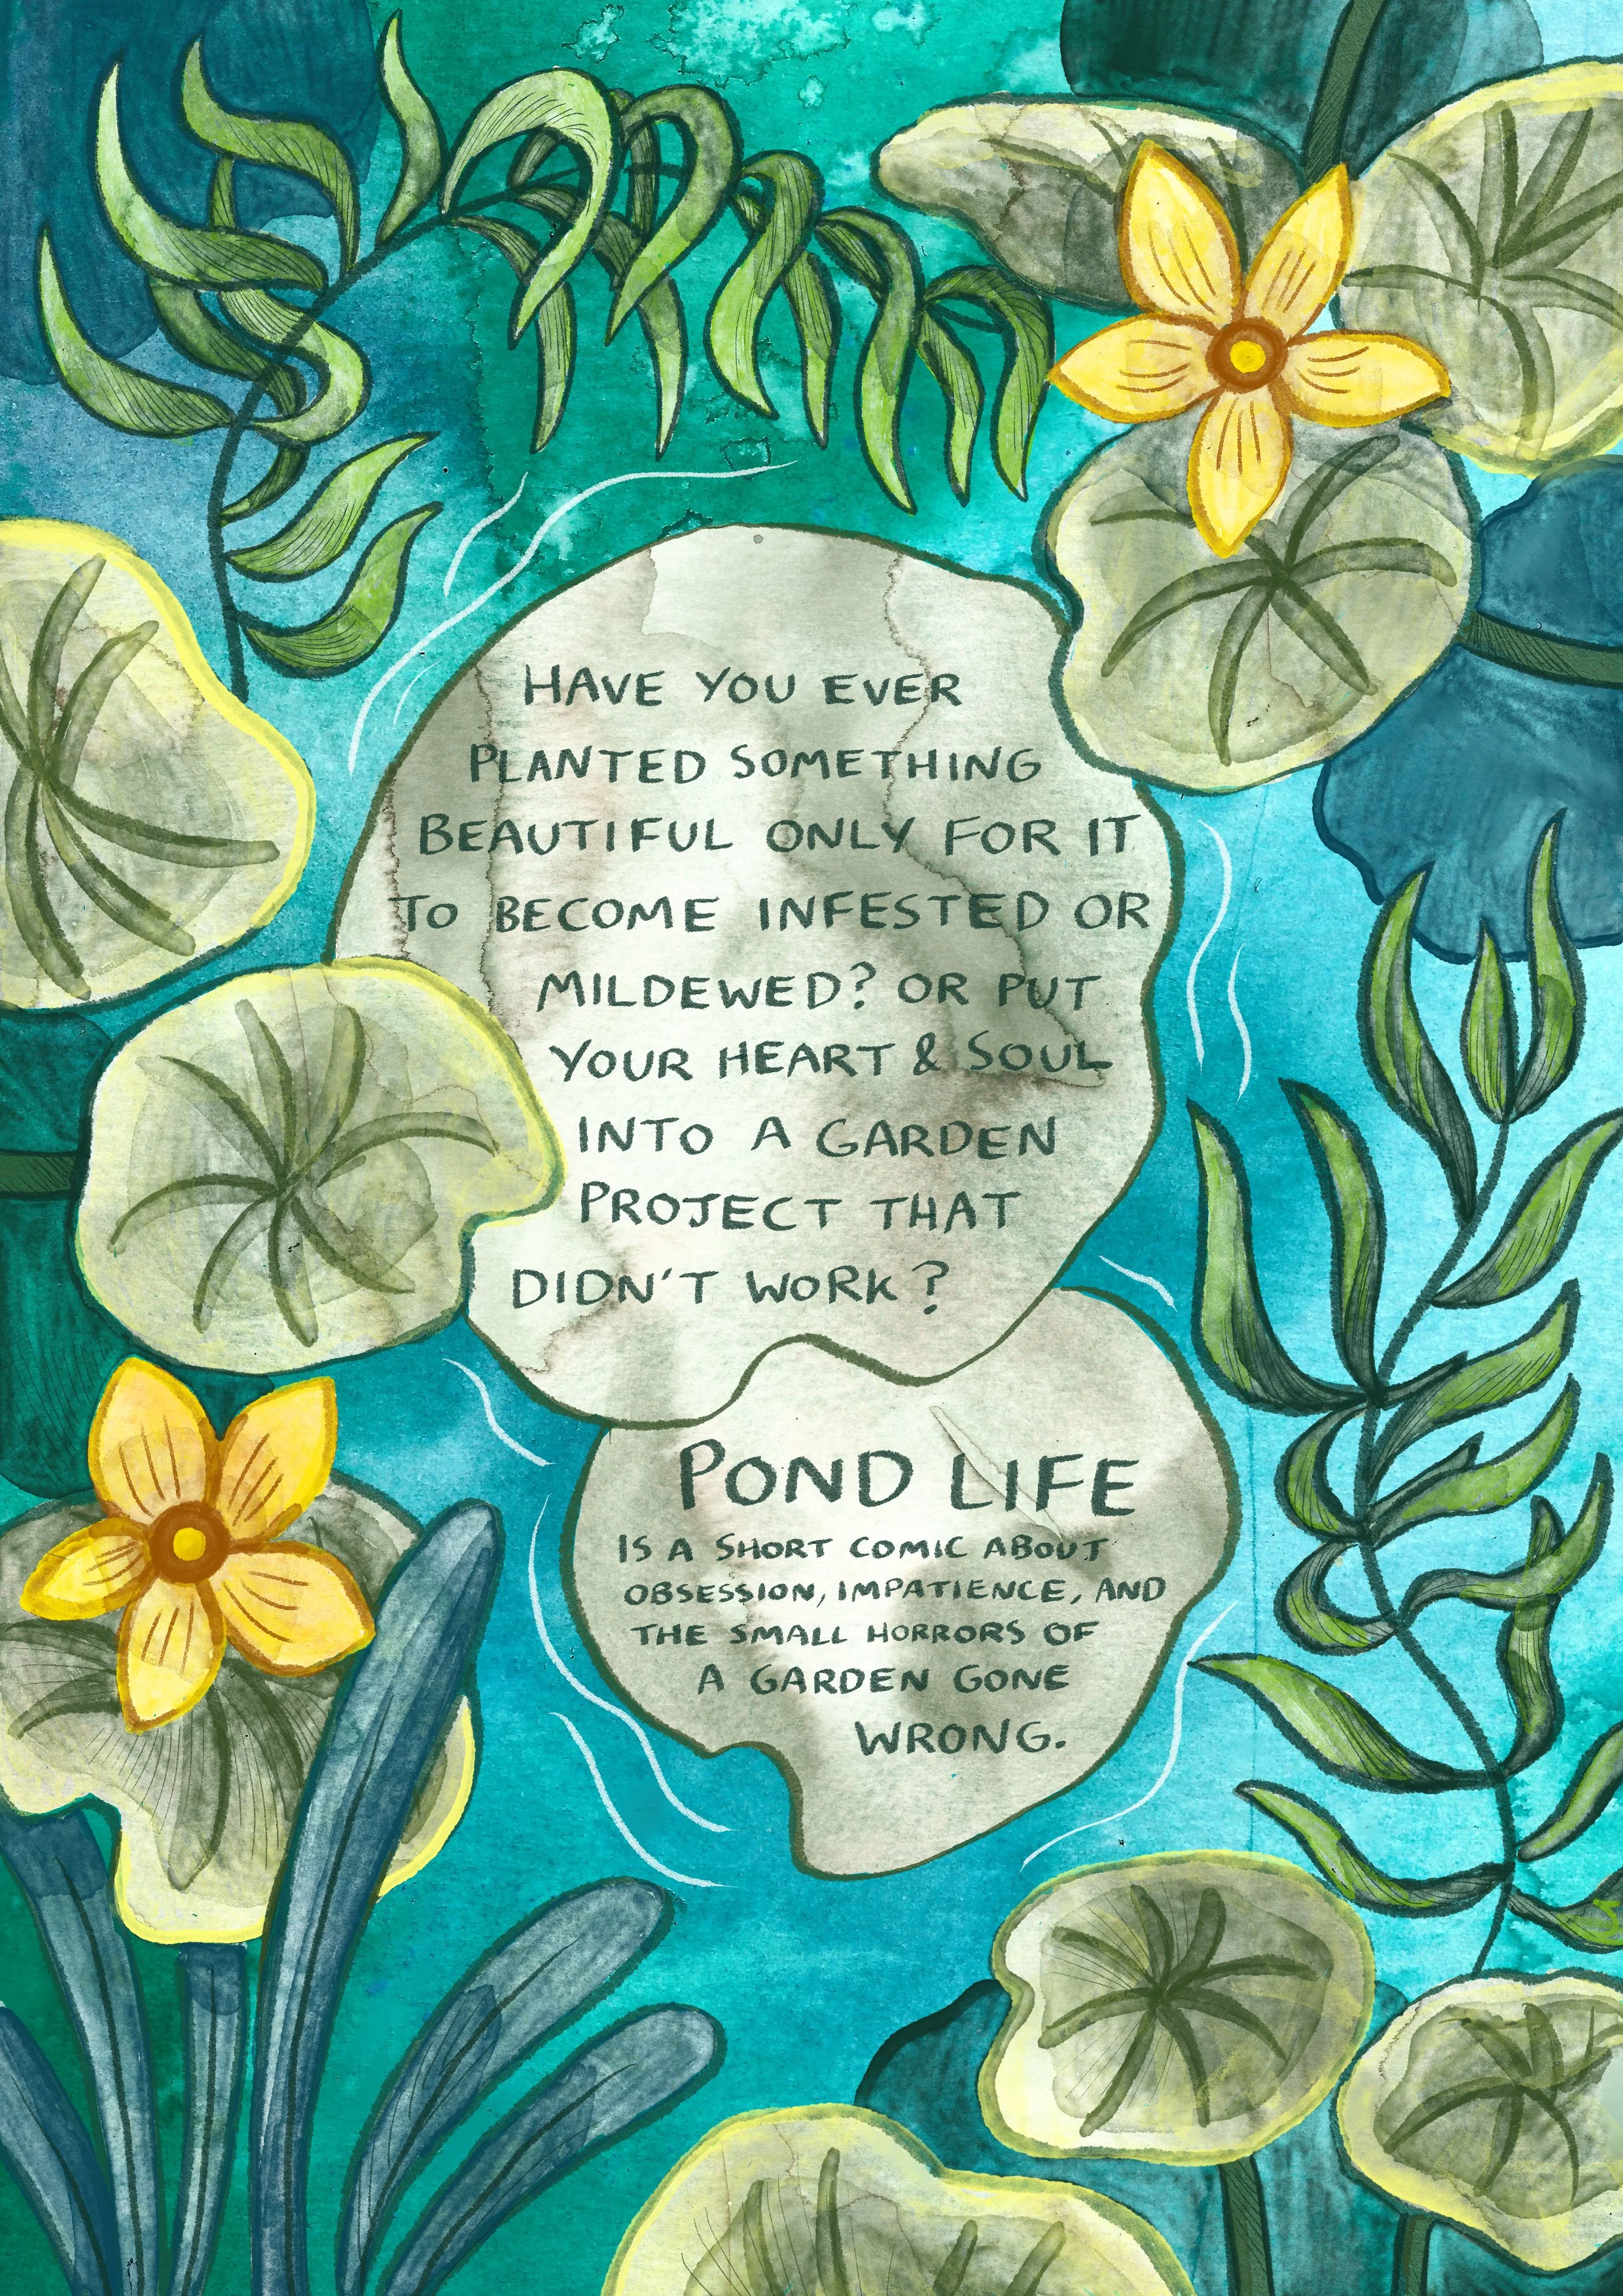 HAVE YOU EVER
PLANTED SOMETHING
BEAUTIFUL ONLY FOR IT
TO BECOME INFESTED OR
MILDEWED? OR PUT
YOUR HEART & SOUL
INTO A GARDEN
PROJECT THAT
DIDN'T WORK?
POND LIFE
IS A SHORT COMIC ABOUT
OBSESSION, IMPATIENCE, AND
THE SMALL HORRORS OF
A GARDEN GONE
WRONG.